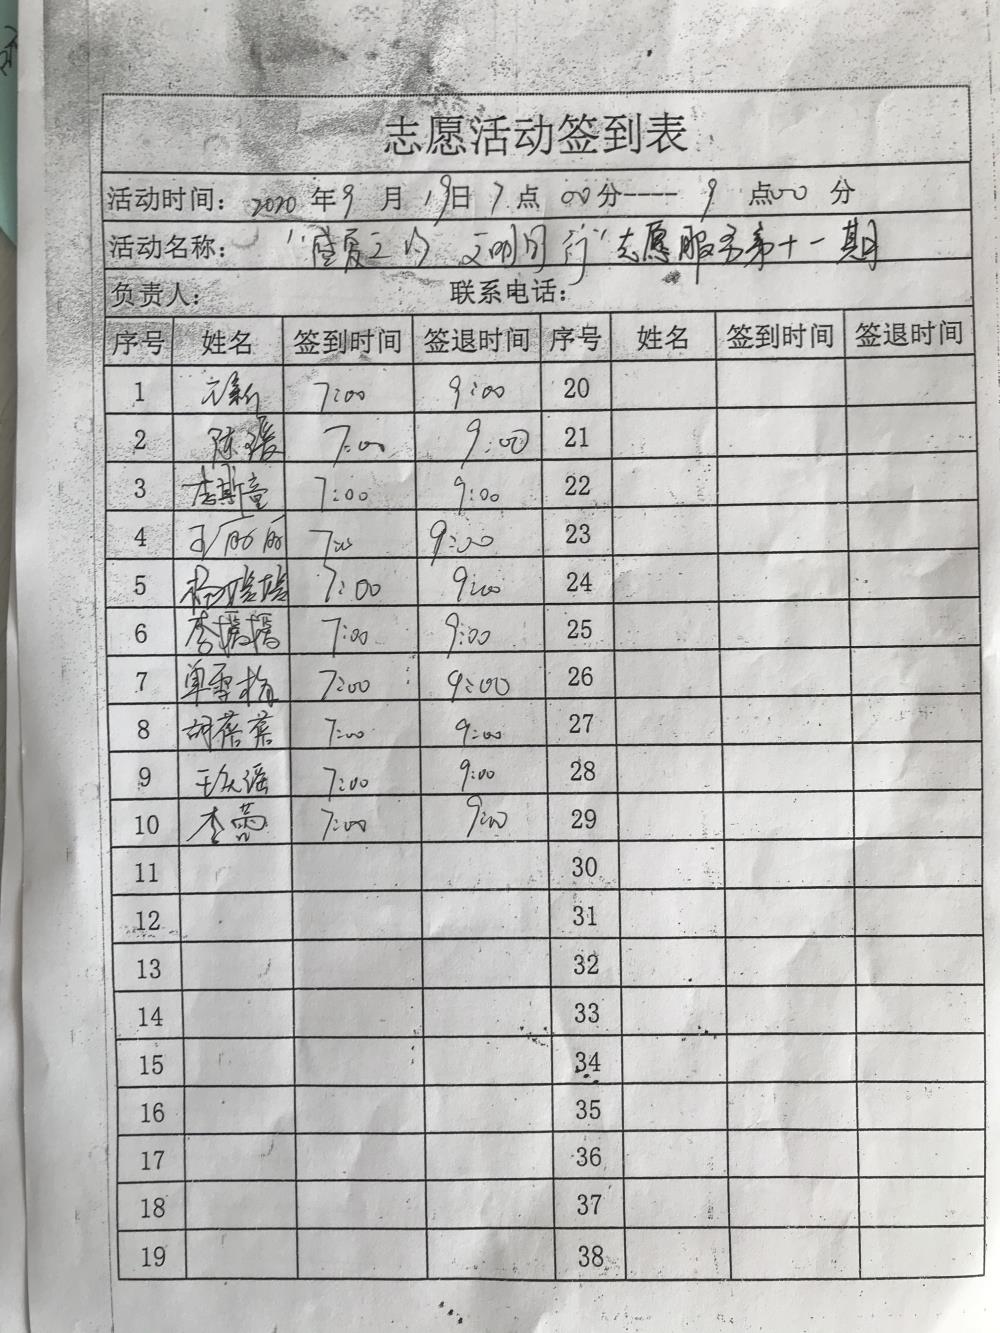 志愿活动签到表
活动时间: 2020 年 9 月 19日 7 点 00分---- 9 点00 分
活动名称: 文明同行"志愿服务第十一期
负责人: 联系电话:
序号 姓名 签到时间 签退时间 序号 姓名 签到时间 签退时间
1 7:00 9:00 20
2 陈瑗 7:00 9:00 21
3 李斯童 7:00 9:00 22
4 王丽丽 7:00 9:00 23
5 杨培培 7:00 9:00 24
6 李媛媛 7:00 9:00 25
7 单雪梅 7:00 9:00 26
8 胡蓓蓓 7:00 9:00 27
9 王久瑶 7:00 9:00 28
10 李蕾 7:00 9:00 29
11 30
12 31
13 32
14 33
15 34
16 35
17 36
18 37
19 38